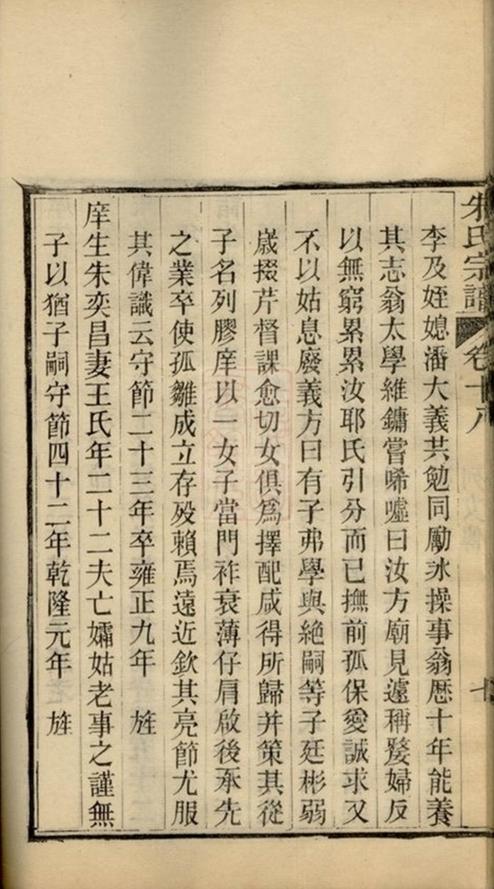 朱氏宗譜 卷十八 七
李及姪媳潘大義共勉同勵氷操事翁歷十年能養
其志翁太學維鏞嘗唏噓曰汝方廟見遽稱嫠婦反
以無窮累累汝耶氏引分而已撫前孤保愛誠求又
不以姑息廢義方曰有子弗學與絶嗣等子廷彬弱
歲掇芹督課愈切女俱爲擇配咸得所歸并策其從
子名列膠庠以一女子當門祚衰薄仔肩啟後承先
之業卒使孤雛成立存歿賴焉遠近欽其亮節尤服
其偉識云守節二十三年卒雍正九年 旌
庠生朱奕昌妻王氏年二十二夫亡孀姑老事之謹無
子以猶子嗣守節四十二年乾隆元年 旌